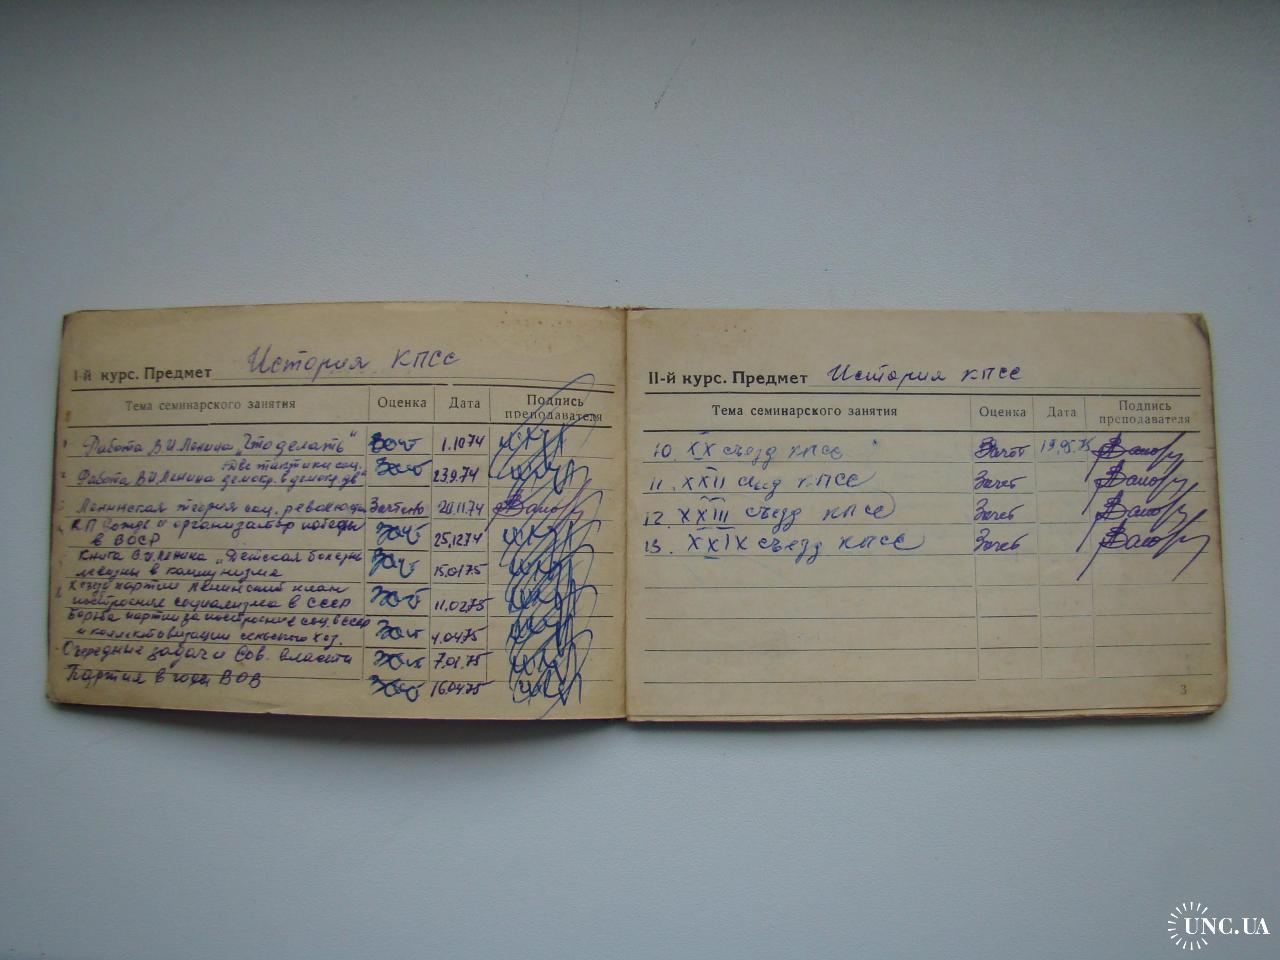 I-й курс. Предмет История КПСС
Тема семинарского занятия Оценка Дата Подпись преподавателя
Работа В.И. Ленина „Что делать" Зачт 1.10.74
Работа В.И. Ленина „Две тактики соц. демокр. в демокр.
Зачт 23.9.74
Ленинская теория соц. революции Зачтено 20.11.74
КП вождь и организатор победы
в ВОСР Зачт 25.12.74
Книга В.И. Ленина „Детская болезнь
левизны в коммунизме Зачт 15.01.75
X съезд партии Ленинский план
построения социализма в СССР Зачт 11.02.75
Борьба партии за построение соц. в СССР
и коллективизации сельского хоз. Зачт 4.04.75
Очередные задачи Сов. власти Зачт 7.01.75
Партия в годы ВОВ Зачт 16.04.75
II-й курс. Предмет История КПСС
Тема семинарского занятия Оценка Дата Подпись преподавателя
10. XX съезд КПСС Зачет 19.05.75
11. XXII съезд КПСС Зачет
12. XXIII съезд КПСС Зачет
13. XXIX съезд КПСС Зачет
3
UNC.UA